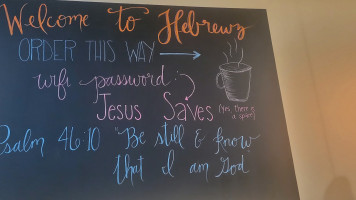 Welcome to Hebrewz
ORDER THIS WAY
wifi password:
Jesus Saves (Yes, there is a space)
Psalm 46:10 "Be still & know
that I am God